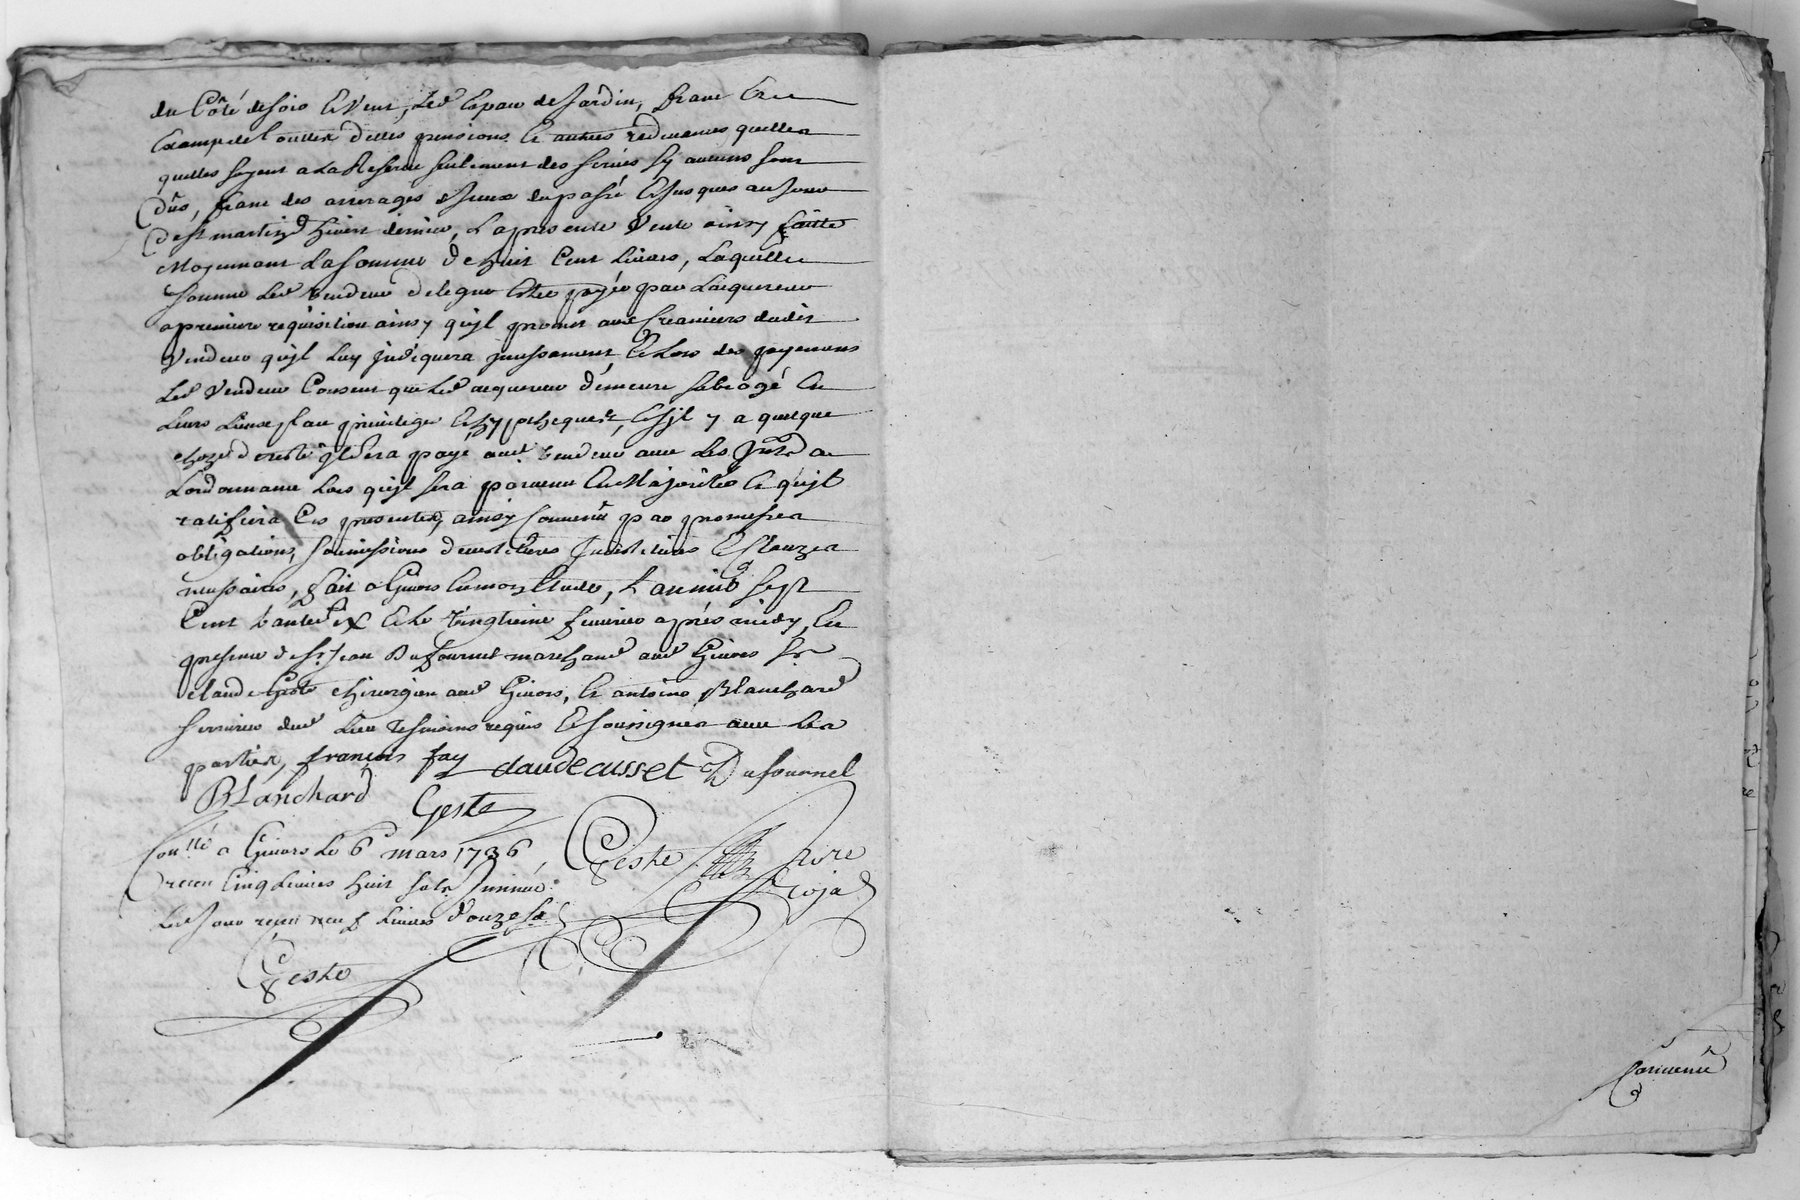 du Côté de soir Et vent, led Espace de Jardin, franc Et
Exempt de touttes dittes pensions Et autres redevances quelles
quelles soyent a La Reserve seulement des servis sy aucuns sont
dûs, franc des arrerages d'yceux du passé Et jusques au Jour
de st martin d'hivert dernier, La presente vente ainsy faitte
Moyennant La somme de huit Cent Livres, Laquelle
somme Led vendeur delegue Estre payée par Lacquereur
a premiere requisition ainsy quyl promet aux Creanciers dudit
vendeur quyl Luy Indiquera Incessament, Et Lors des payemens
Led vendeur Consent que Led acquereur demeure subrogé En
Leurs Lieux place privilege Et hypotheques, Et syl y a quelque
chose de reste yl sera payé aud vendeur avec Les Jnts de
Lordonnance Lors quyl sera parvenu En Majorité Et quyl
ratifiera Ces presentes, ainsy Convenu par promesses
obligations, soumissions Et Clauzes
necessaires, fait a Givors En mon Etude, L'an mil sept
Cent trante six Et Le vingtieme fevrier après midy, En
presence de sr. Jean Dufournel marchand aud Givors sr
Claude Geste chirurgien aud Givors, Et antoine Blanchard
serrurier dud Lieu tesmoins requis Et soussignés avec Les
parties, françois fay claude cusset Dufournel
Blanchard Geste
Conllé a Givors Le 6 mars 1736, Geste Nore
receu Cinq Livres huit sols Roja
Led Jour receu neuf Livres douze s
Geste
Convenu